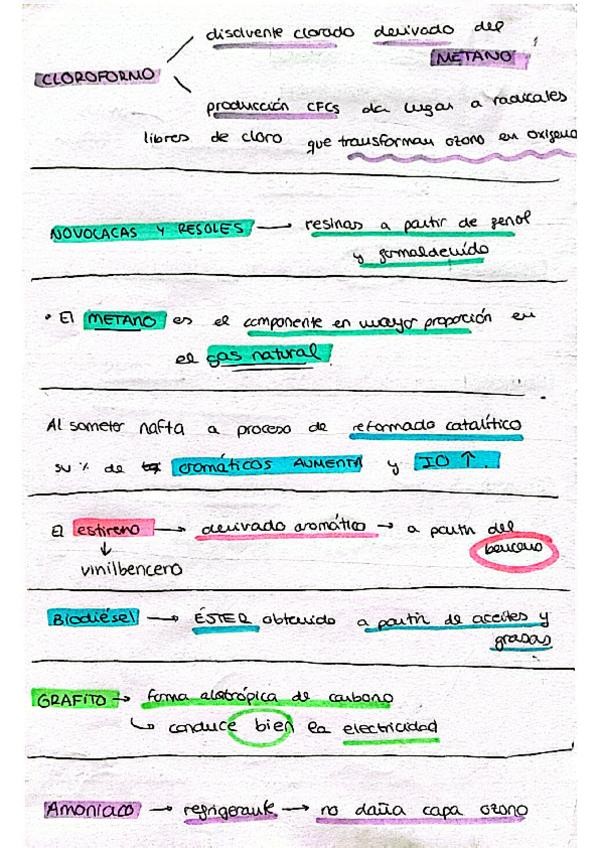 disolvente clorado derivado del
METANO
CLOROFORMO
producción CFCs da lugar a radicales
libres de cloro que transforman ozono en oxígeno
NOVOLACAS Y RESOLES → resinas a partir de fenol
y formaldehído
• El METANO es el componente en mayor proporción en
el gas natural
Al someter nafta a proceso de reformado catalítico
su % de aromáticos AUMENTA y IO ↑.
El estireno → derivado aromático → a partir del
benceno
↓
vinilbenceno
Biodiésel → ÉSTER obtenido a partir de aceites y
grasas
GRAFITO → forma alotrópica de carbono
↳ conduce bien la electricidad
Amoniaco → refrigerante → no daña capa ozono